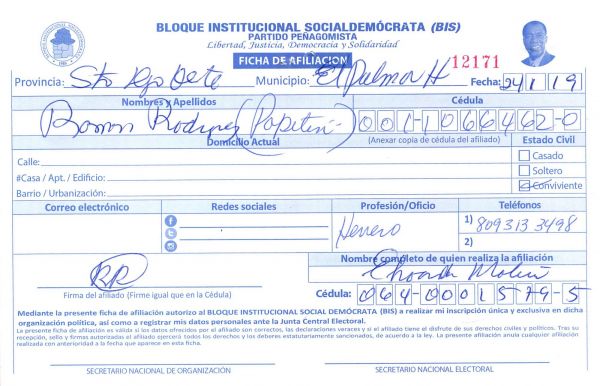 BLOQUE INSTITUCIONAL SOCIALDEMÓCRATA (BIS)
PARTIDO PEÑAGOMISTA
Libertad, Justicia, Democracia y Solidaridad
FICHA DE AFILIACION
12171
Provincia: Sto Dgo Oeste Municipio: El Palmar H Fecha: 24/1/19
Nombres y Apellidos Cédula
Ramon Rodriguez (Papitin) 001-1066462-0
Domicilio Actual (Anexar copia de cédula del afiliado) Estado Civil
Calle: Casado
#Casa / Apt. / Edificio: Soltero
Barrio / Urbanización: Conviviente
Correo electrónico Redes sociales Profesión/Oficio Teléfonos
Herrero 1) 809 313 3498
2)
Nombre completo de quien realiza la afiliación
RR
Firma del afiliado (Firme igual que en la Cédula) Cédula: 064-0001579-5
Mediante la presente ficha de afiliación autorizo al BLOQUE INSTITUCIONAL SOCIAL DEMÓCRATA (BIS) a realizar mi inscripción única y exclusiva en dicha
organización política, así como a registrar mis datos personales ante la Junta Central Electoral.
La presente ficha de afiliación es valida si los datos ofrecidos por el afiliado son correctos, las declaraciones veraces y si el afiliado tiene el disfrute de sus derechos civiles y políticos. Tras su
recepción, sello y firmas autorizadas el afiliado ejercerá todos los derechos y los deberes estatutariamente sancionados, de acuerdo a la ley. La presente afiliación anula cualquier afiliación
realizada con anterioridad a la fecha que aparece en esta ficha.
SECRETARIO NACIONAL DE ORGANIZACIÓN SECRETARIO NACIONAL ELECTORAL